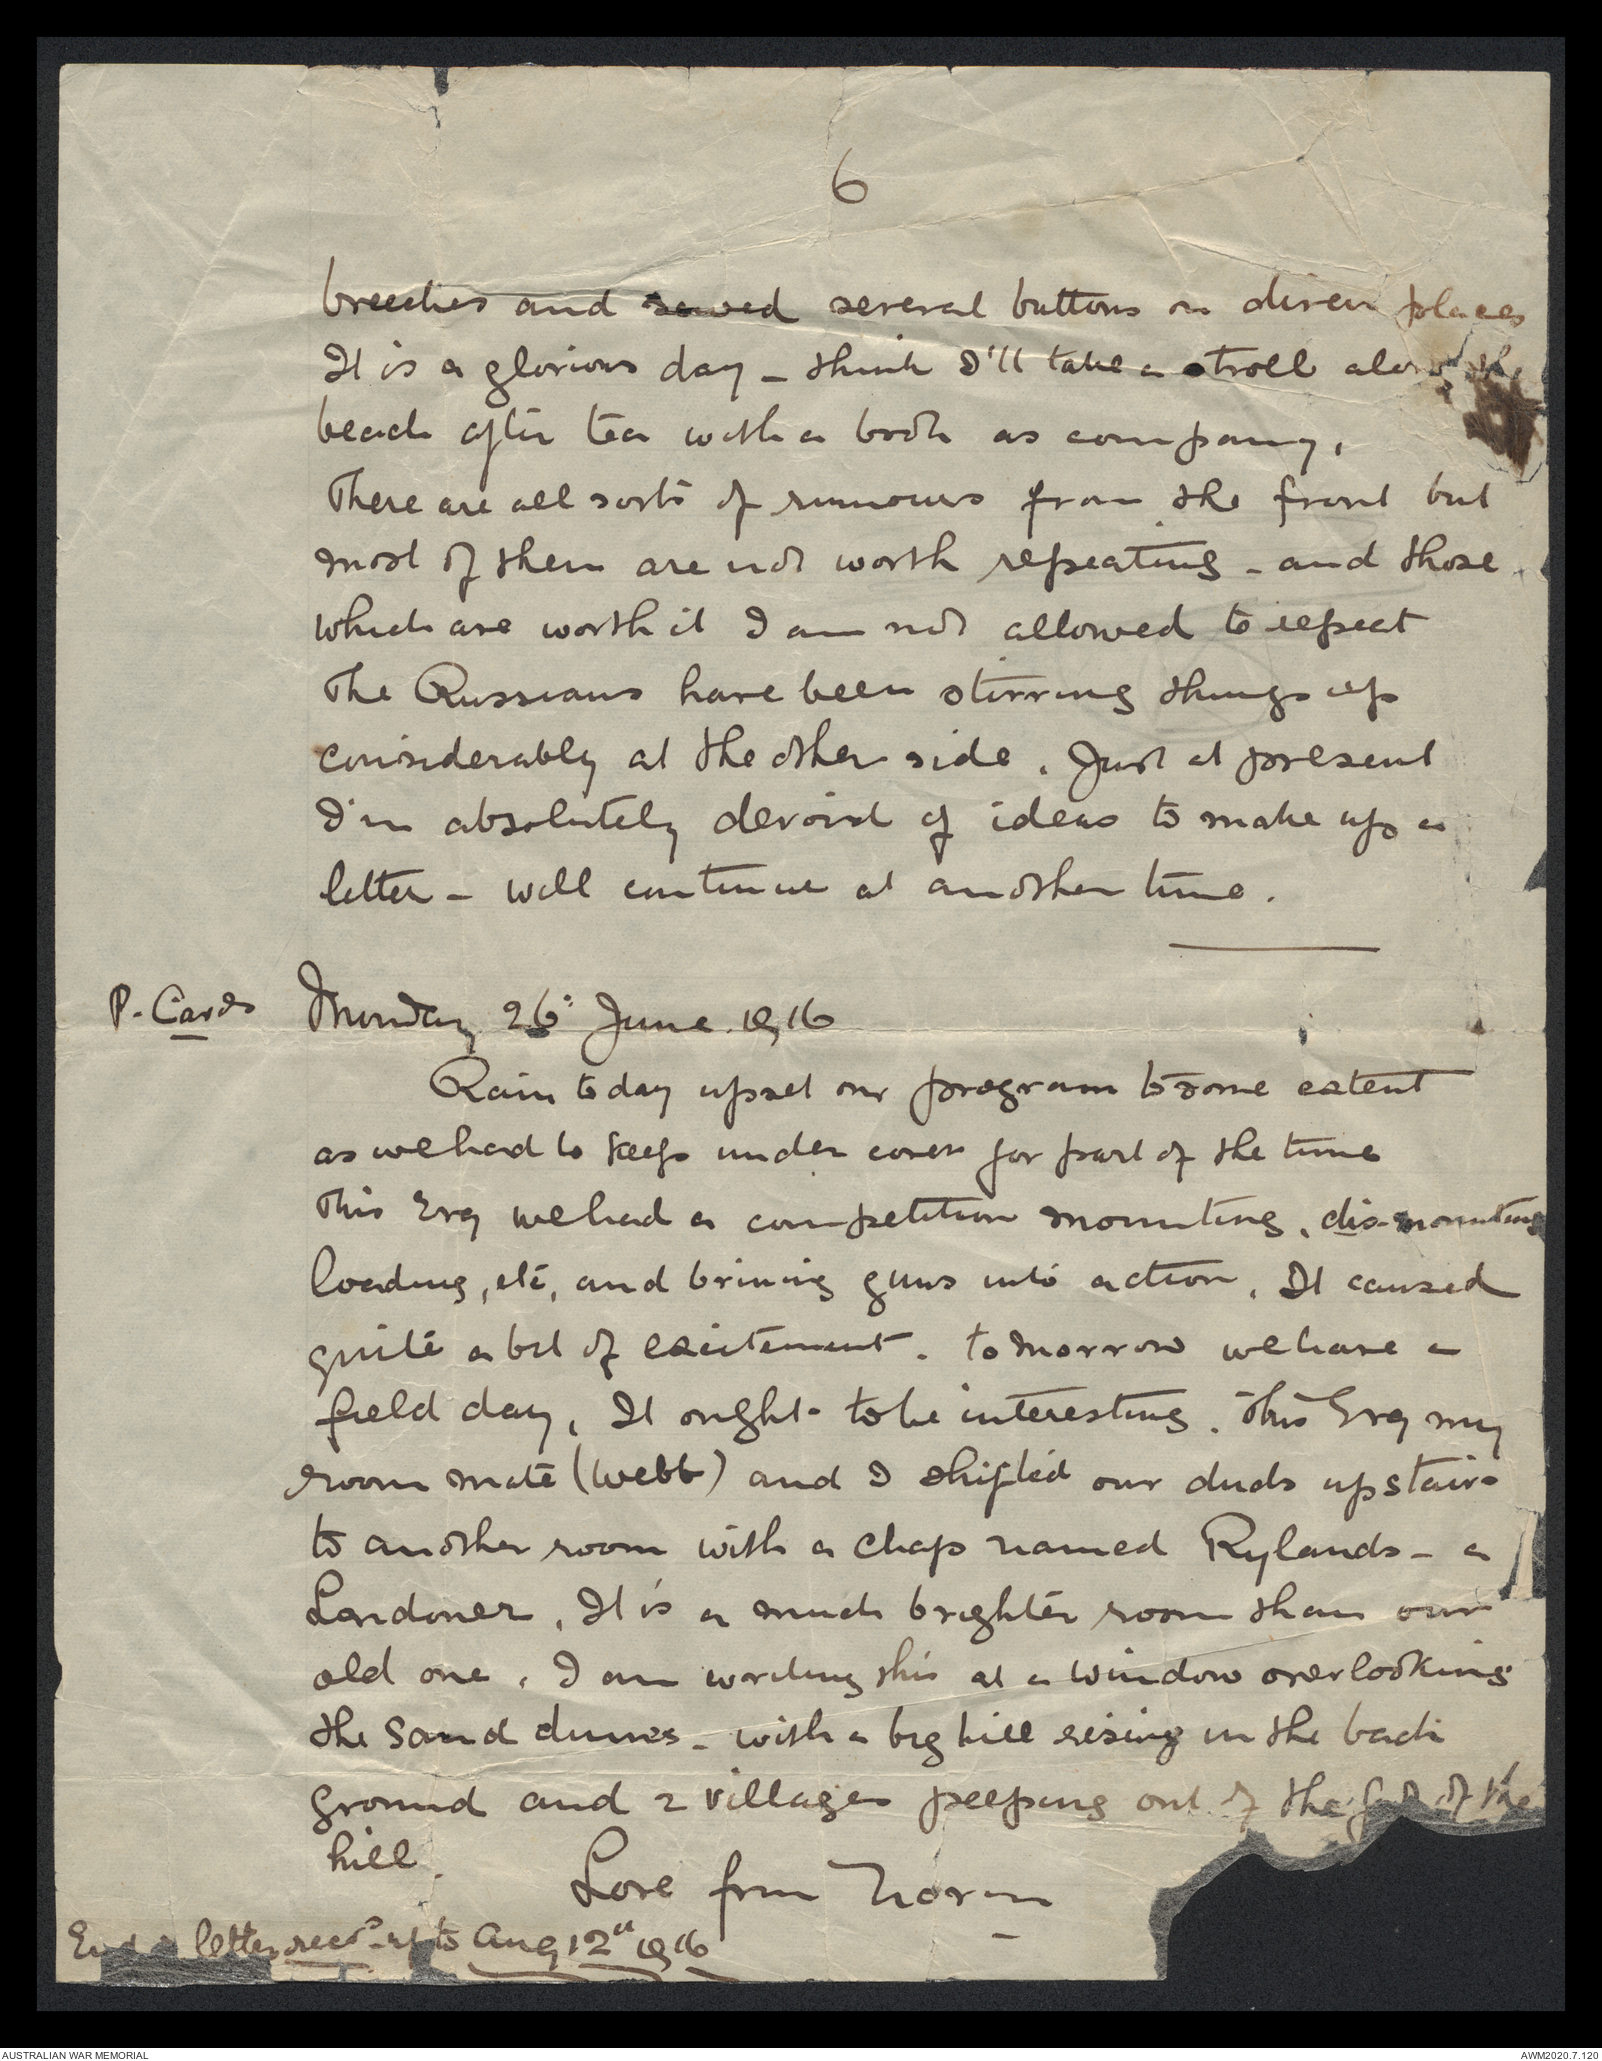 6
breeches and sewed several buttons on divers places
It is a glorious day - think I'll take a stroll along the
beach after tea with a book as company,
There are all sorts of rumours from the front but
most of them are not worth repeating - and those
which are worth it I am not allowed to repeat
The Russians have been stirring things up
considerably at the other side. Just at present
I'm absolutely devoid of ideas to make up a
letter - will continue at another time.
P. Cards Monday 26 June 1916
Rain today upset our program to some extent
as we had to keep under cover for part of the time
This Evg we had a competition mounting, dis-mounting
loading, etc, and brining guns into action. It caused
quite a bit of excitement. tomorrow we have a
field day, It ought to be interesting. This Evg my
room mate (Webb) and I shifted our duds upstairs
to another room with a chap named Rylands - a
Londoner, It is a much brighter room than our
old one. I am writing this at a window overlooking
the sand dunes - with a big hill rising in the back
ground and 2 villages peeping out of the foot of the
hill.
Love from Norm
End letter recd up to Aug 12th 1916
AUSTRALIAN WAR MEMORIAL
AWM2020.7.120